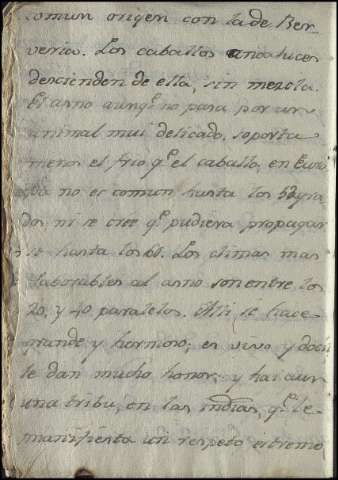 comun origen con la de Ber
veria. Los caballos andaluces
descienden de ella, sin mezcla.
El asno aunq.e no pasa por un
animal mui delicado, soporta
menos el frio q.e el caballo, en Euro
pa no es comun hasta los 52 gra
dos ni se cree q.e pudiera propagar
se hasta los 60. Los climas mas
faborables al asno son entre los
20, y 40 paralelos. Alli se hace
grande y hermoso; es vivo y docil
le dan mucho honor, y hai aun
una tribu, en las indias, q.e le
manifiesta un respeto estremo